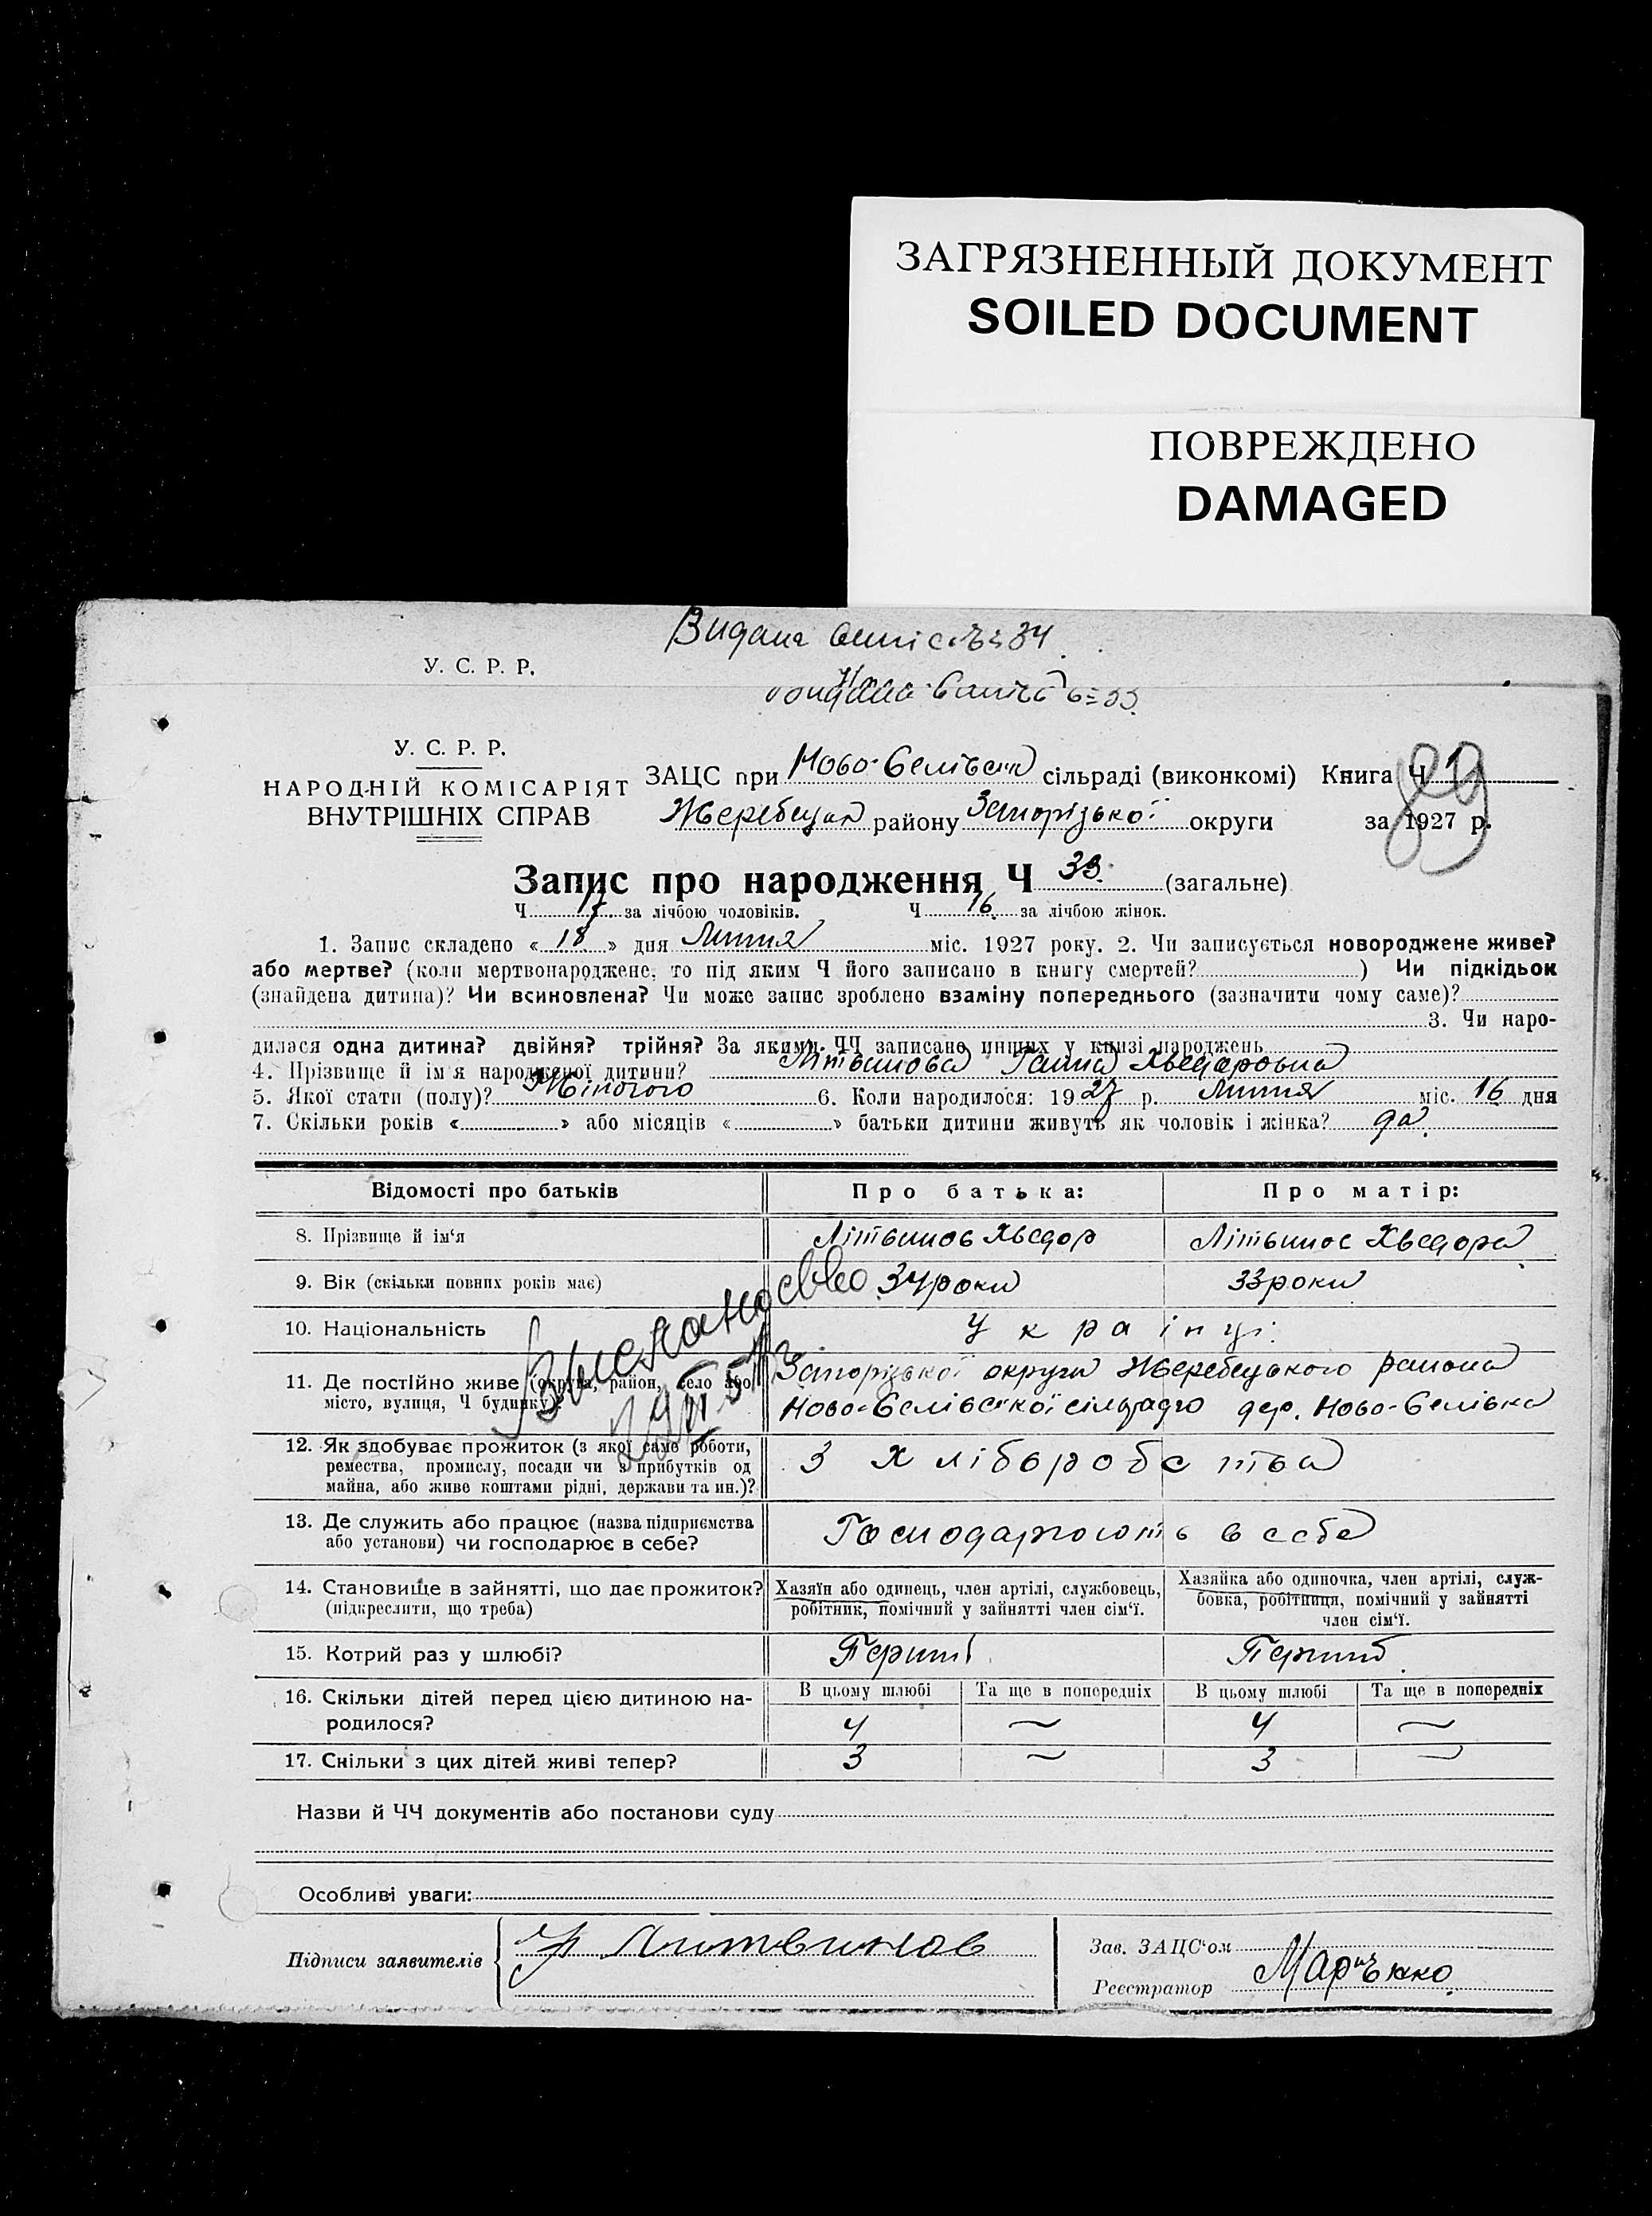 ЗАГРЯЗНЕННЫЙ ДОКУМЕНТ
SOILED DOCUMENT
ПОВРЕЖДЕНО
DAMAGED
У. С. Р. Р.
У. С. Р. Р.
НАРОДНІЙ КОМІСАРІЯТ
ВНУТРІШНІХ СПРАВ
ЗАЦС при Ново-Селівськ сільраді (виконкомі) Книга Ч 1
Жеребецьк району Запорізької округи за 1927 р.
89
Запис про народження Ч 33 (загальне)
Ч 17 за лічбою чоловіків. Ч 16 за лічбою жінок.
1. Запис складено « 18 » дня Липня міс. 1927 року. 2. Чи записується новороджене живе?
або мертве? (коли мертвонароджене, то під яким Ч його записано в книгу смертей? ) Чи підкідьок
(знайдена дитина)? Чи всиновлена? Чи може запис зроблено взаміну попереднього (зазначити чому саме)?
3. Чи наро-
дилася одна дитина? двійня? трійня? За якими ЧЧ записано инших у книзі народжень
4. Прізвище й ім'я народженої дитини? Літвинова Ганна Хведоровна
5. Якої стати (полу)? Жіночого 6. Коли народилося: 1927 р. Липня міс. 16 дня
7. Скільки років « » або місяців « » батьки дитини живуть як чоловік і жінка? да
Відомості про батьків Про батька: Про матір:
8. Прізвище й ім'я Літвинов Хведор Літвинов Хведора
9. Вік (скільки повних років має) 34 роки 33 роки
10. Національність Українці
11. Де постійно живе (округа, район, село або Запорізької округи Жеребецького района
місто, вулиця, Ч будинку) Ново-Селівської сільради дер. Ново-Селівка
12. Як здобуває прожиток (з якої саме роботи,
ремества, промислу, посади чи з прибутків од
майна, або живе коштами рідні, держави та ин.)? З хліборобства
13. Де служить або працює (назва підприємства
або установи) чи господарює в себе? Господарюють в себе
14. Становище в зайнятті, що дає прожиток? Хазяїн або одинець, член артілі, службовець, Хазяйка або одиночка, член артілі, служ-
(підкреслити, що треба) робітник, помічний у зайнятті член сім'ї. бовка, робітниця, помічний у зайнятті
член сім'ї.
15. Котрий раз у шлюбі? Перший Перший
16. Скільки дітей перед цією дитиною на- В цьому шлюбі Та ще в попередніх В цьому шлюбі Та ще в попередніх
родилося? 4 — 4 —
17. Скільки з цих дітей живі тепер? 3 — 3 —
Назви й ЧЧ документів або постанови суду
Особливі уваги:
Підписи заявителів Литвинов
Зав. ЗАЦС'ом
Реєстратор Марченко